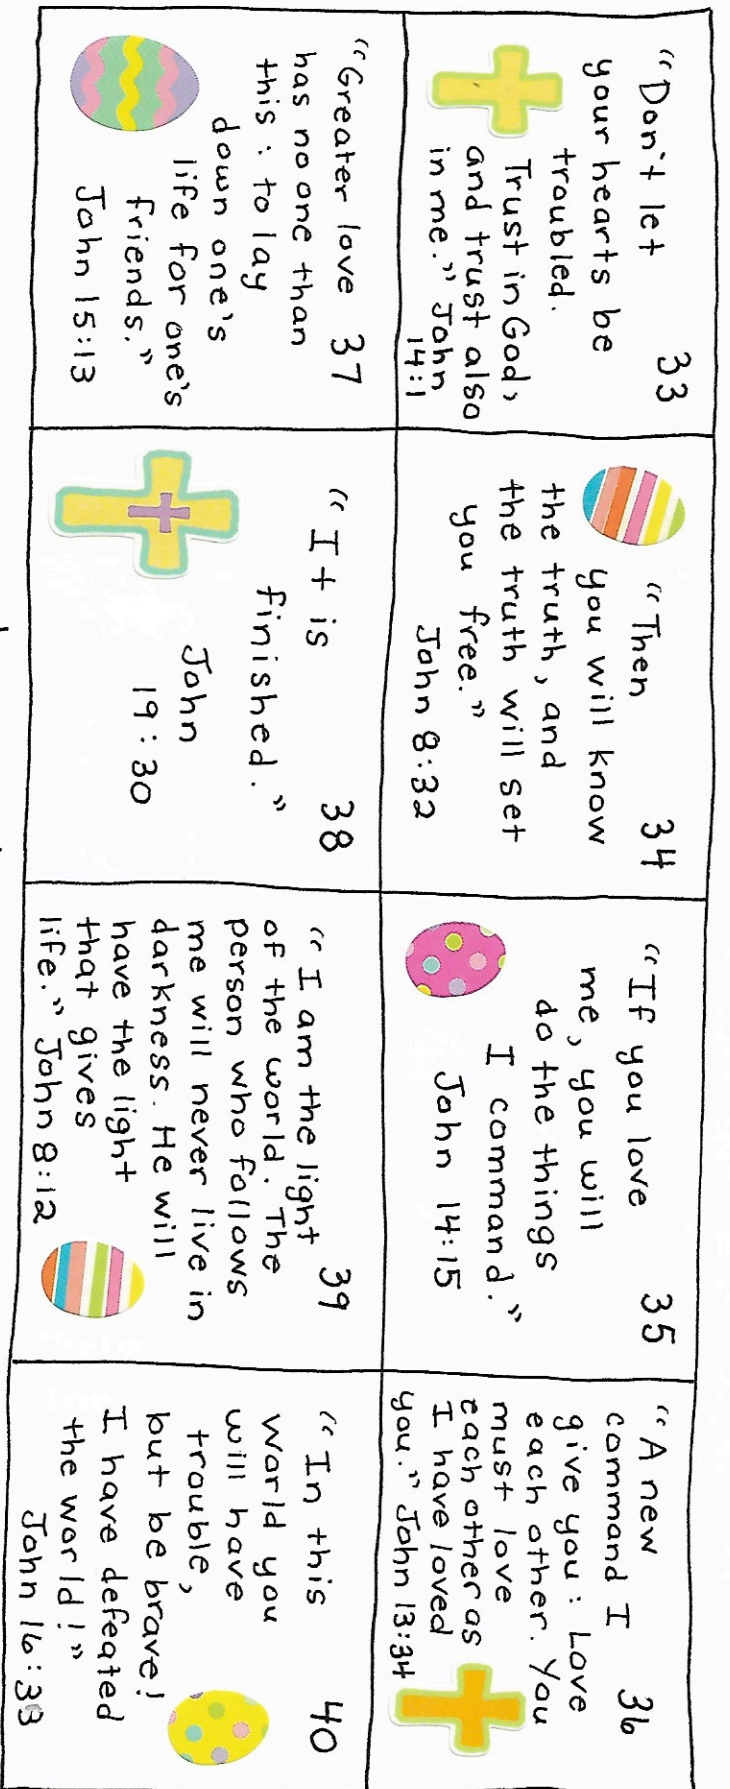 33
"Don't let
your hearts be
troubled.
Trust in God,
and trust also
in me." John
14:1
34
"Then
you will know
the truth, and
the truth will set
you free."
John 8:32
35
"If you love
me, you will
do the things
I command."
John 14:15
36
"A new
command I
give you: Love
each other. You
must love
each other as
I have loved
you." John 13:34
37
"Greater love
has no one than
this: to lay
down one's
life for one's
friends."
John 15:13
38
"It is
finished."
John
19:30
39
"I am the light
of the world. The
person who follows
me will never live in
darkness. He will
have the light
that gives
life." John 8:12
40
"In this
world you
will have
trouble,
but be brave!
I have defeated
the world!"
John 16:33